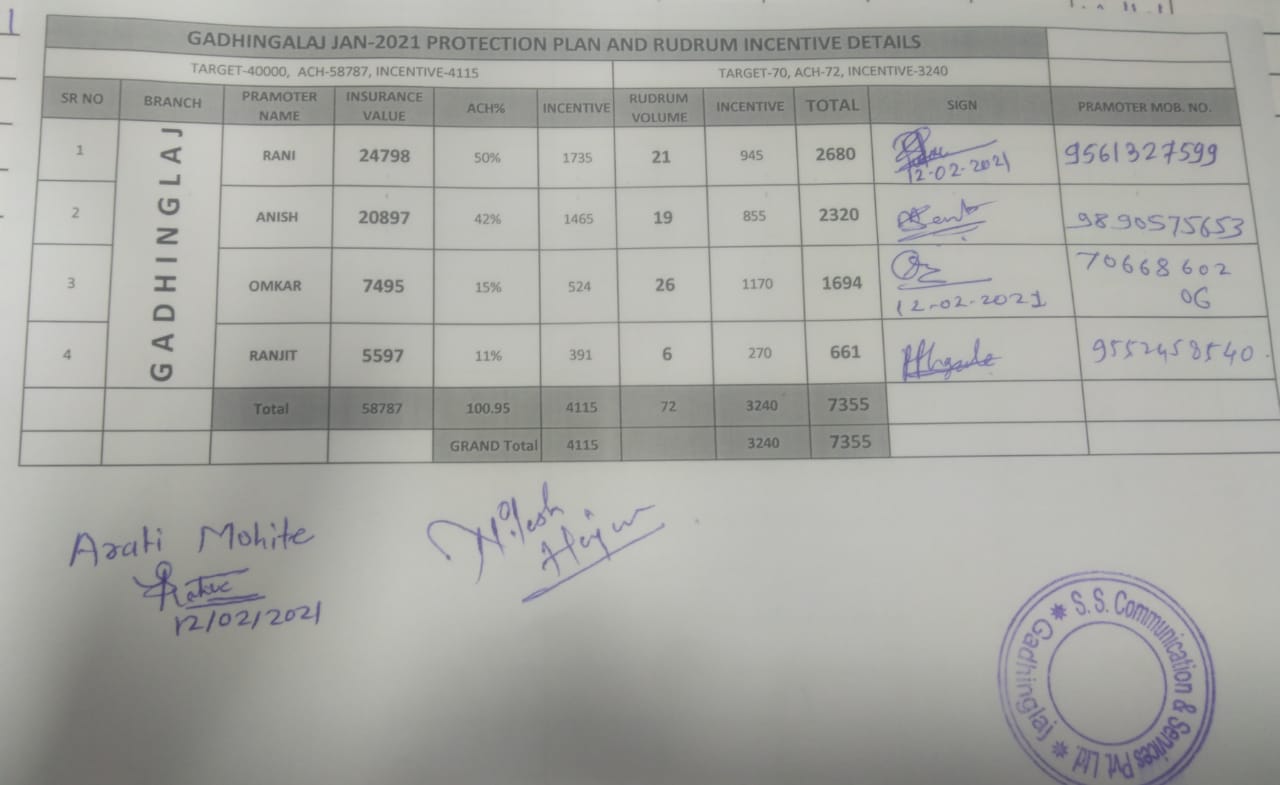 GADHINGALAJ JAN-2021 PROTECTION PLAN AND RUDRUM INCENTIVE DETAILS
TARGET-40000, ACH-58787, INCENTIVE-4115 TARGET-70, ACH-72, INCENTIVE-3240
SR NO BRANCH PRAMOTER NAME INSURANCE VALUE ACH% INCENTIVE RUDRUM VOLUME INCENTIVE TOTAL SIGN PRAMOTER MOB. NO.
GADHINGLAJ
1 RANI 24798 50% 1735 21 945 2680 12-02-2021 9561327599
2 ANISH 20897 42% 1465 19 855 2320 9890575653
3 OMKAR 7495 15% 524 26 1170 1694 12-02-2021 70668602
06
4 RANJIT 5597 11% 391 6 270 661 9552458540
Total 58787 100.95 4115 72 3240 7355
GRAND Total 4115 3240 7355
Arati Mohite
12/02/2021
Nilesh
S.S. Communication & Services Pvt. Ltd.
Gadhinglaj